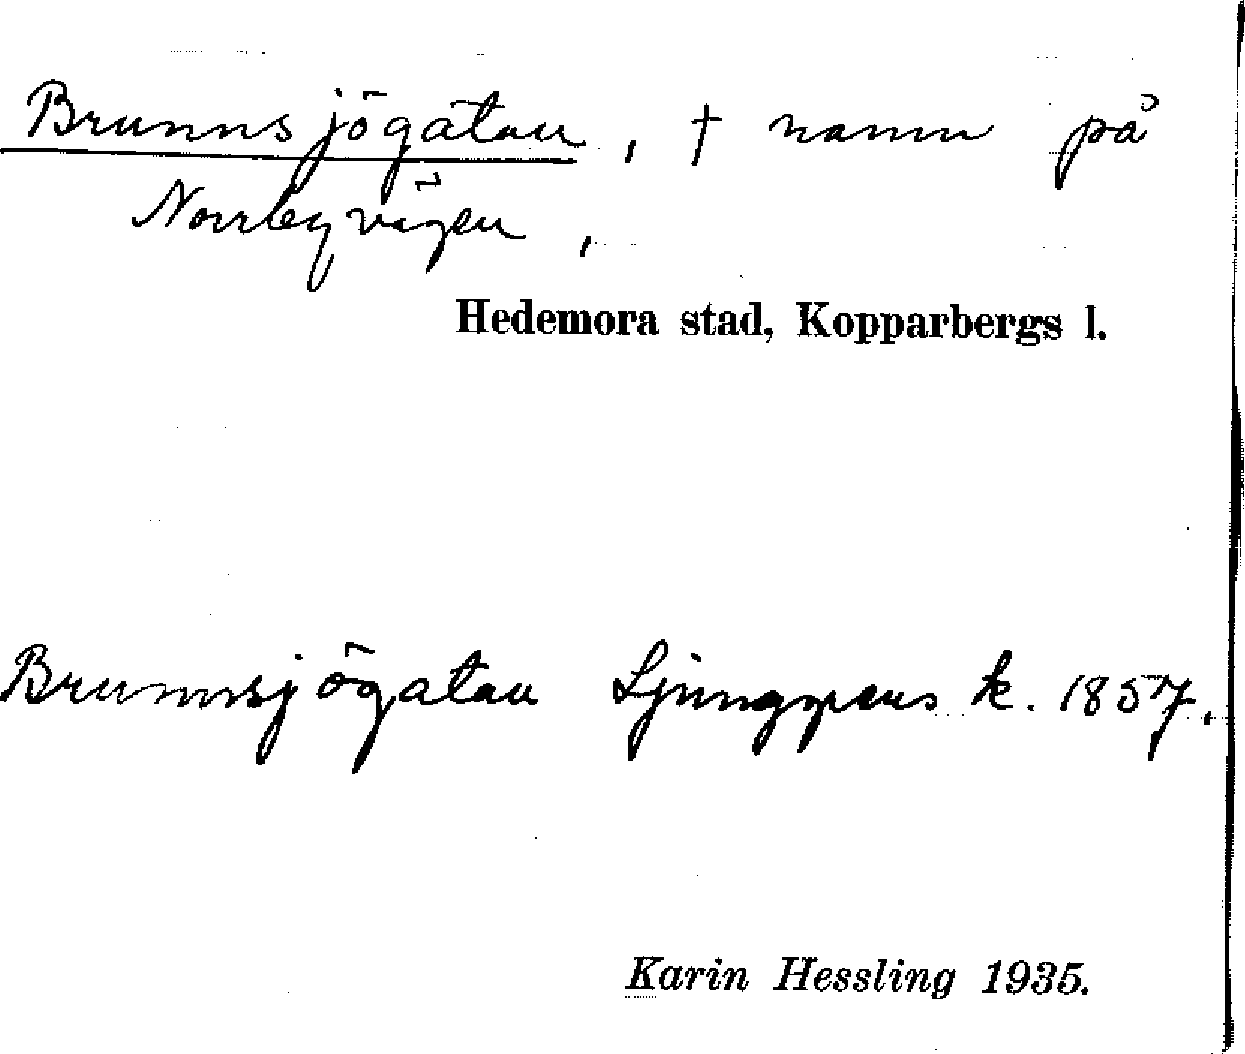 Brunnsjögatan, † namn på
Norrbyvägen,
Hedemora stad, Kopparbergs l.
Brunnsjögatan Ljunggrens k. 1857.
Karin Hessling 1935.